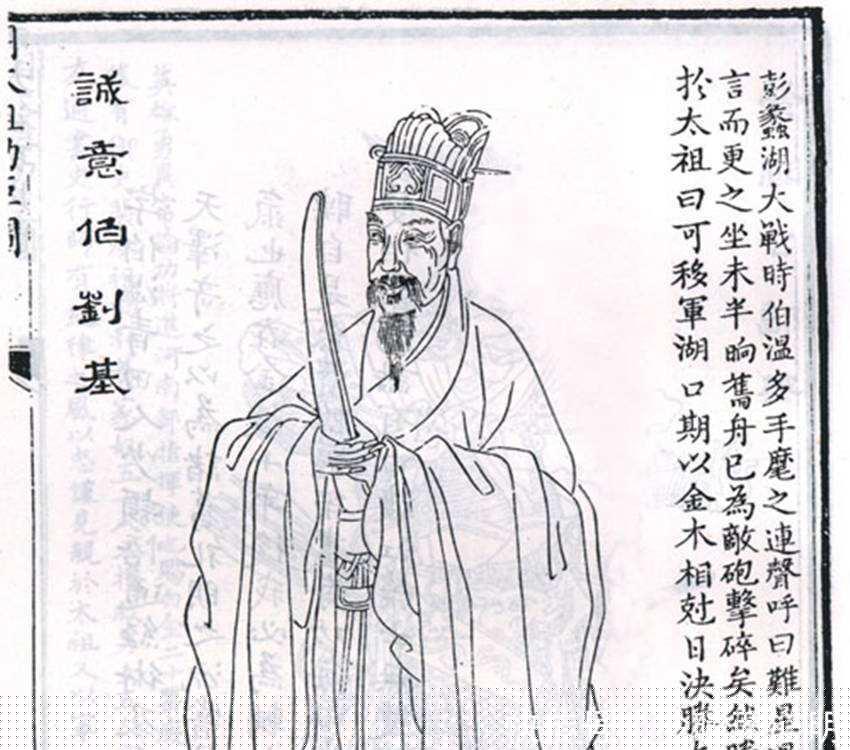 彭蠡湖大戰時伯温多手麾之連聲呼曰難星
言而更之坐未半晌舊舟已為敵砲擊碎矣
扵太祖曰可移軍湖口期以金木相尅日決勝
誠意伯劉基